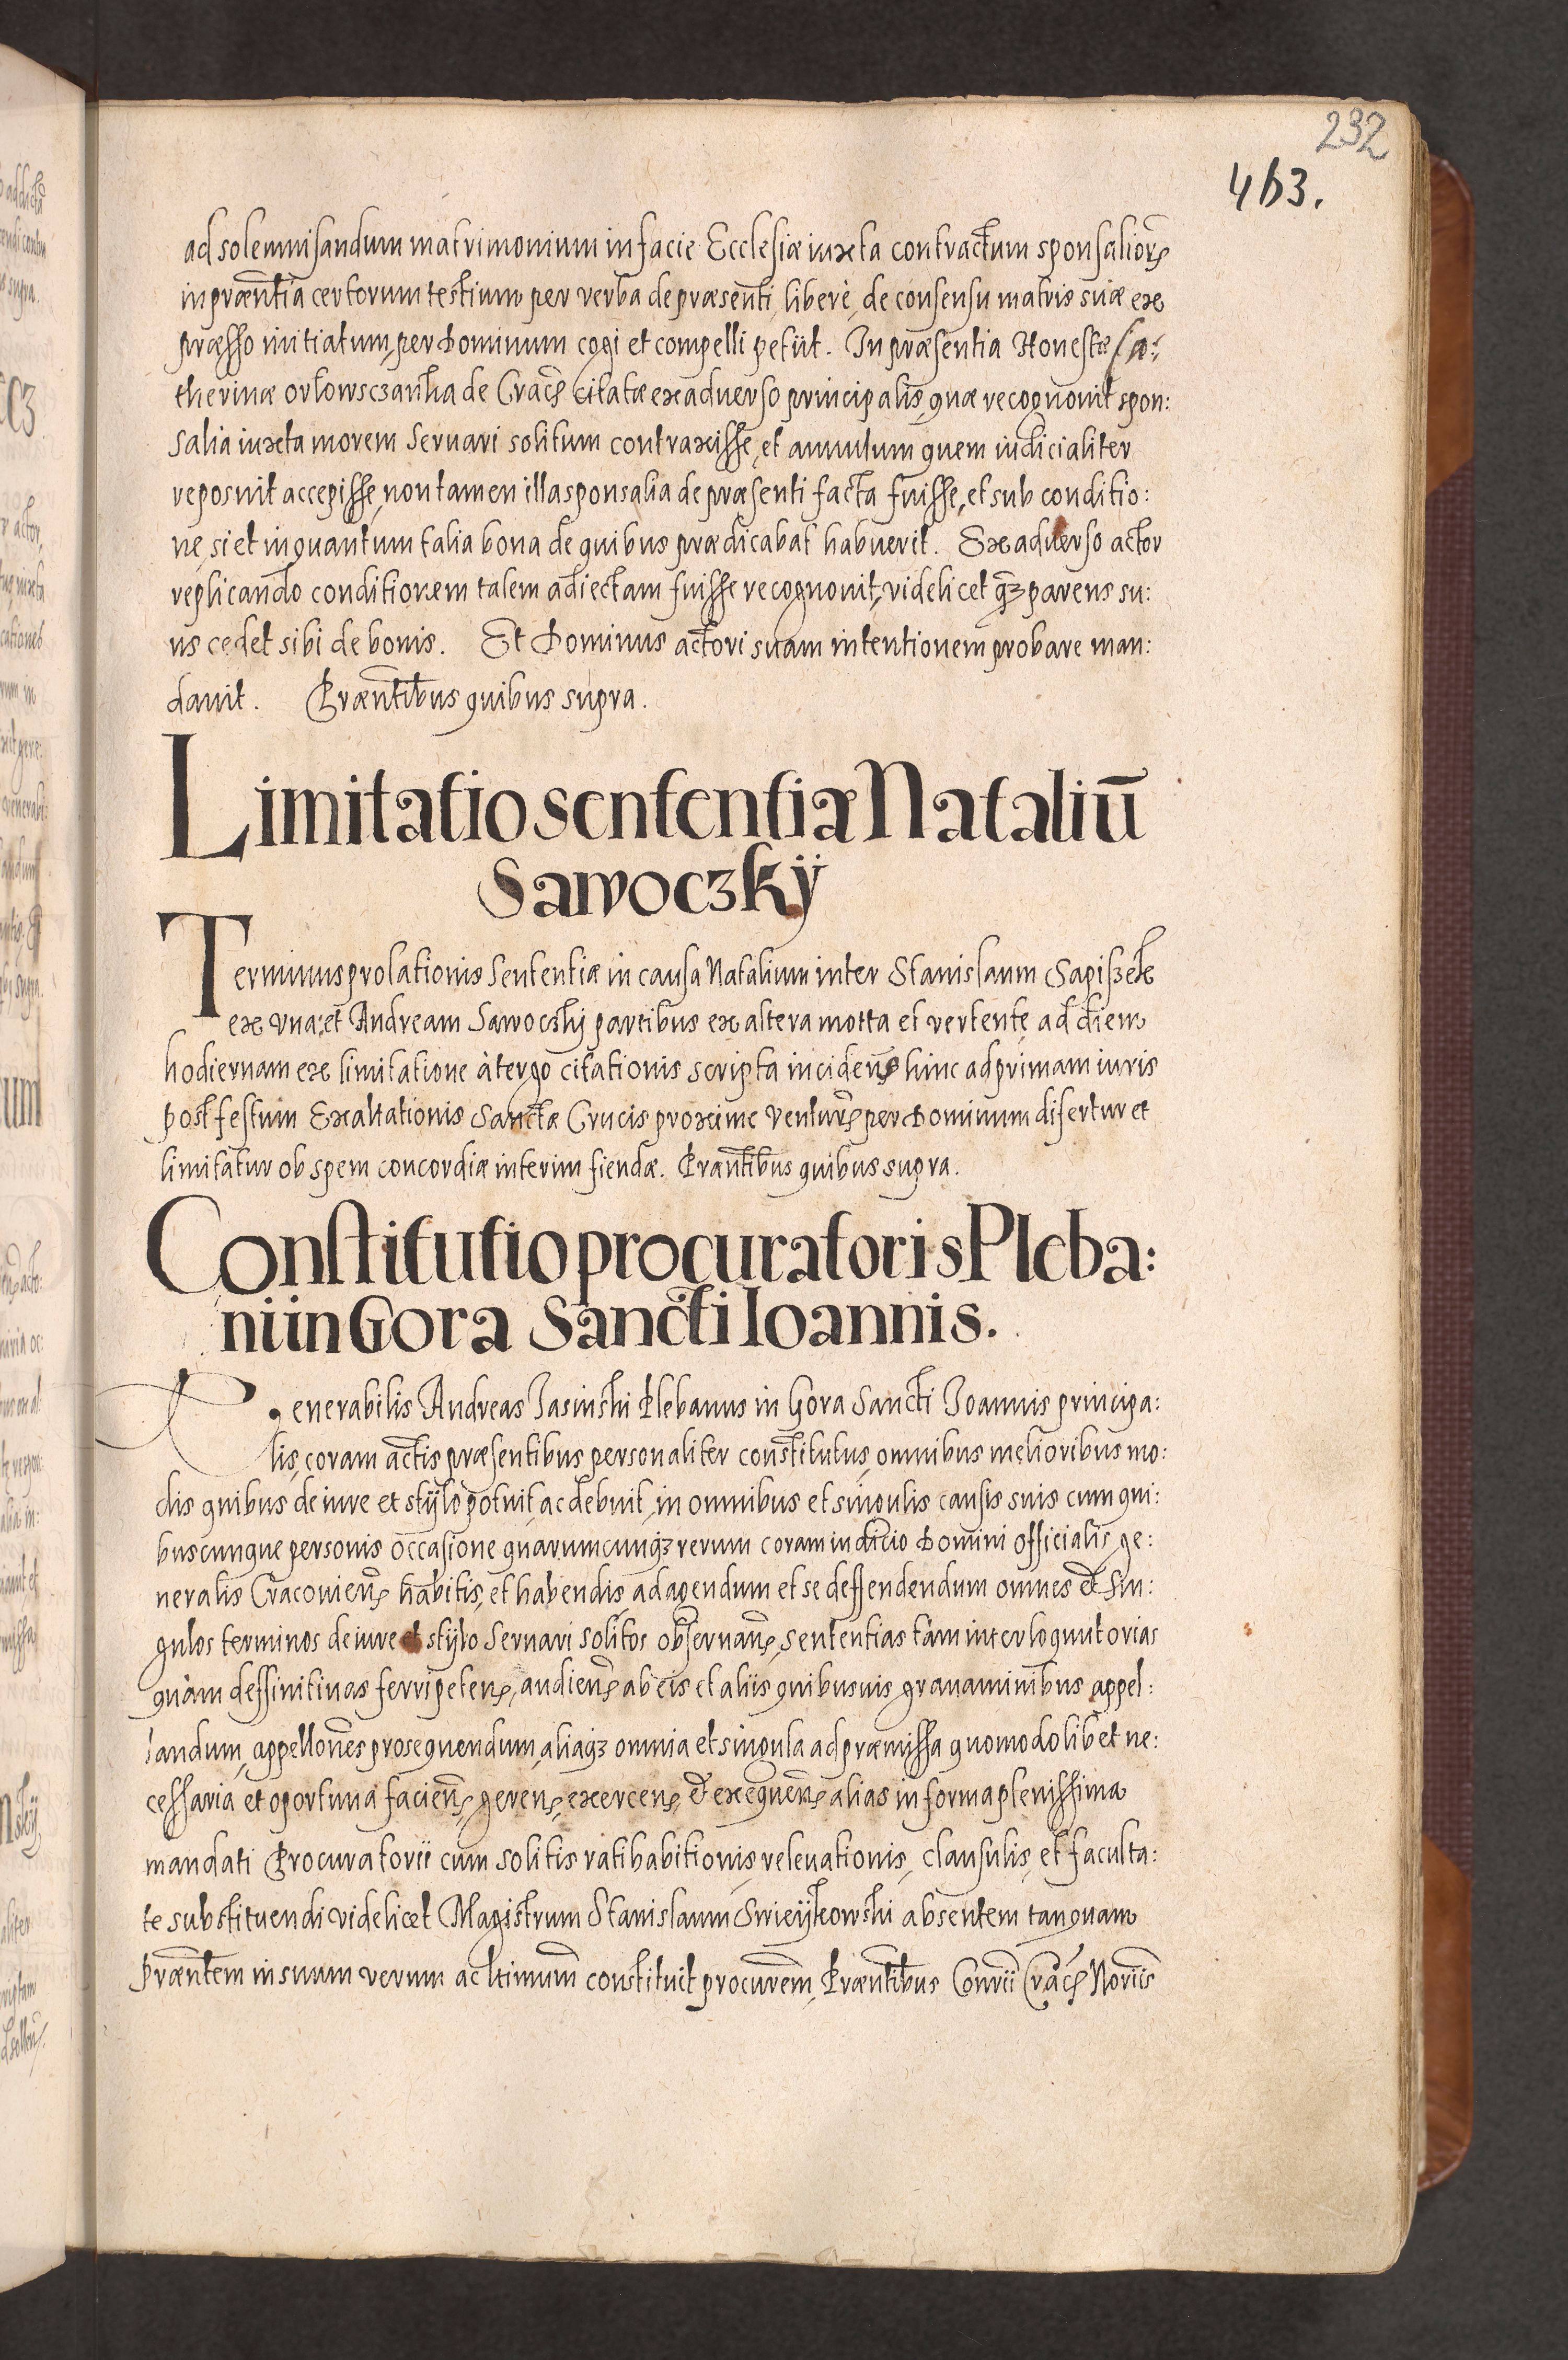 232
463.
ad solemnisandum matrimonium in facie Ecclesiæ iuxta contractum sponsalior̃
in præntĩa certorum testium per verba de præsenti, liberè, de consensu matris suæ ex
præsso initiatum, per Dominum cogi et compelli petiit. In præsentia Honestæ Ca:
therinæ Orlowsczanka de Crac̃ citatæ ex aduerso principalis, quæ recognouit spon:
salia iuxta morem seruari solitum contraxisse, et annulum quem iudicialiter
reposuit accepisse, non tamen illa sponsalia de præsenti facta fuisse, et sub conditio:
ne, si et in quantum talia bona de quibus prædicabat habuerit. Ex aduerso actor
replicando conditionem talem adiectam fuisse recognouit, videlicet q̃ʒ parens su:
us cedet sibi de bonis. Et Dominus actori suam intentionem probare man:
dauit. Præntibus quibus supra.
Limitatio sententiæ Nataliũ
Sawoczkÿ
Terminus prolationis sententiæ in causa Natalium inter Stanislaum Sapiszek
ex vna: et Andream Sawoczkj partibus ex altera motta et vertente, ad diem
hodiernam ex limitatione à tergo citationis scripta inciden̄ hinc ad primam iuris
post festum Exaltationis Sanctæ Crucis proxime ventur̃ per Dominum difertur et
limitatur ob spem concordiæ interim fiendæ. Præntibus quibus supra.
Constitutio procuratoris Pleba:
ni in Gora Sancti Ioannis.
Venerabilis Andreas Jasinski Plebanus in Gora Sancti Joannis principa:
lis, coram actis præsentibus personaliter constitutus, omnibus melioribus mo:
dis quibus de iure et stÿlo potuit, ac debuit, in omnibus et singulis causis suis cum qui:
buscunque personis occasione quarumcunqʒ rerum coram iudicio Domini officialis ge:
neralis Cracouien̄ habitis, et habendis, ad agendum et se deffendendum omnes et sin:
gulos terminos de iure et stÿlo seruari solitos obseruan̄, sententias tàm interloquutorias
quàm deffinitiuas ferri peten̄, audien̄ ab eis et aliis quibusuis grauaminibus appel:
landum, appellonẽs prosequendum, aliaqʒ omnia et singula ad præmissa quomodolibet ne:
cessaria et oportuna facien̄, geren̄, exercen̄, et exequen̄, alias in forma plenissima
mandati Procuratorii cum solitis ratihabitionis, releuationis, clausulis, et faculta:
te substituendi videlicet Magistrum Stanislaum Swieÿkowski absentem tanquam
præntem in suum verum ac ltimum constituit procurem̃, Præntibus Conrii Crac̃ Noriis